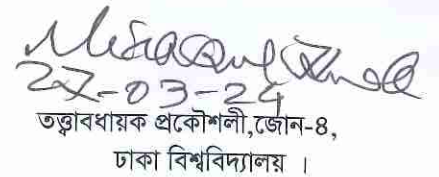 27-03-24
তত্ত্বাবধায়ক প্রকৌশলী,জোন-8,
ঢাকা বিশ্ববিদ্যালয় ।